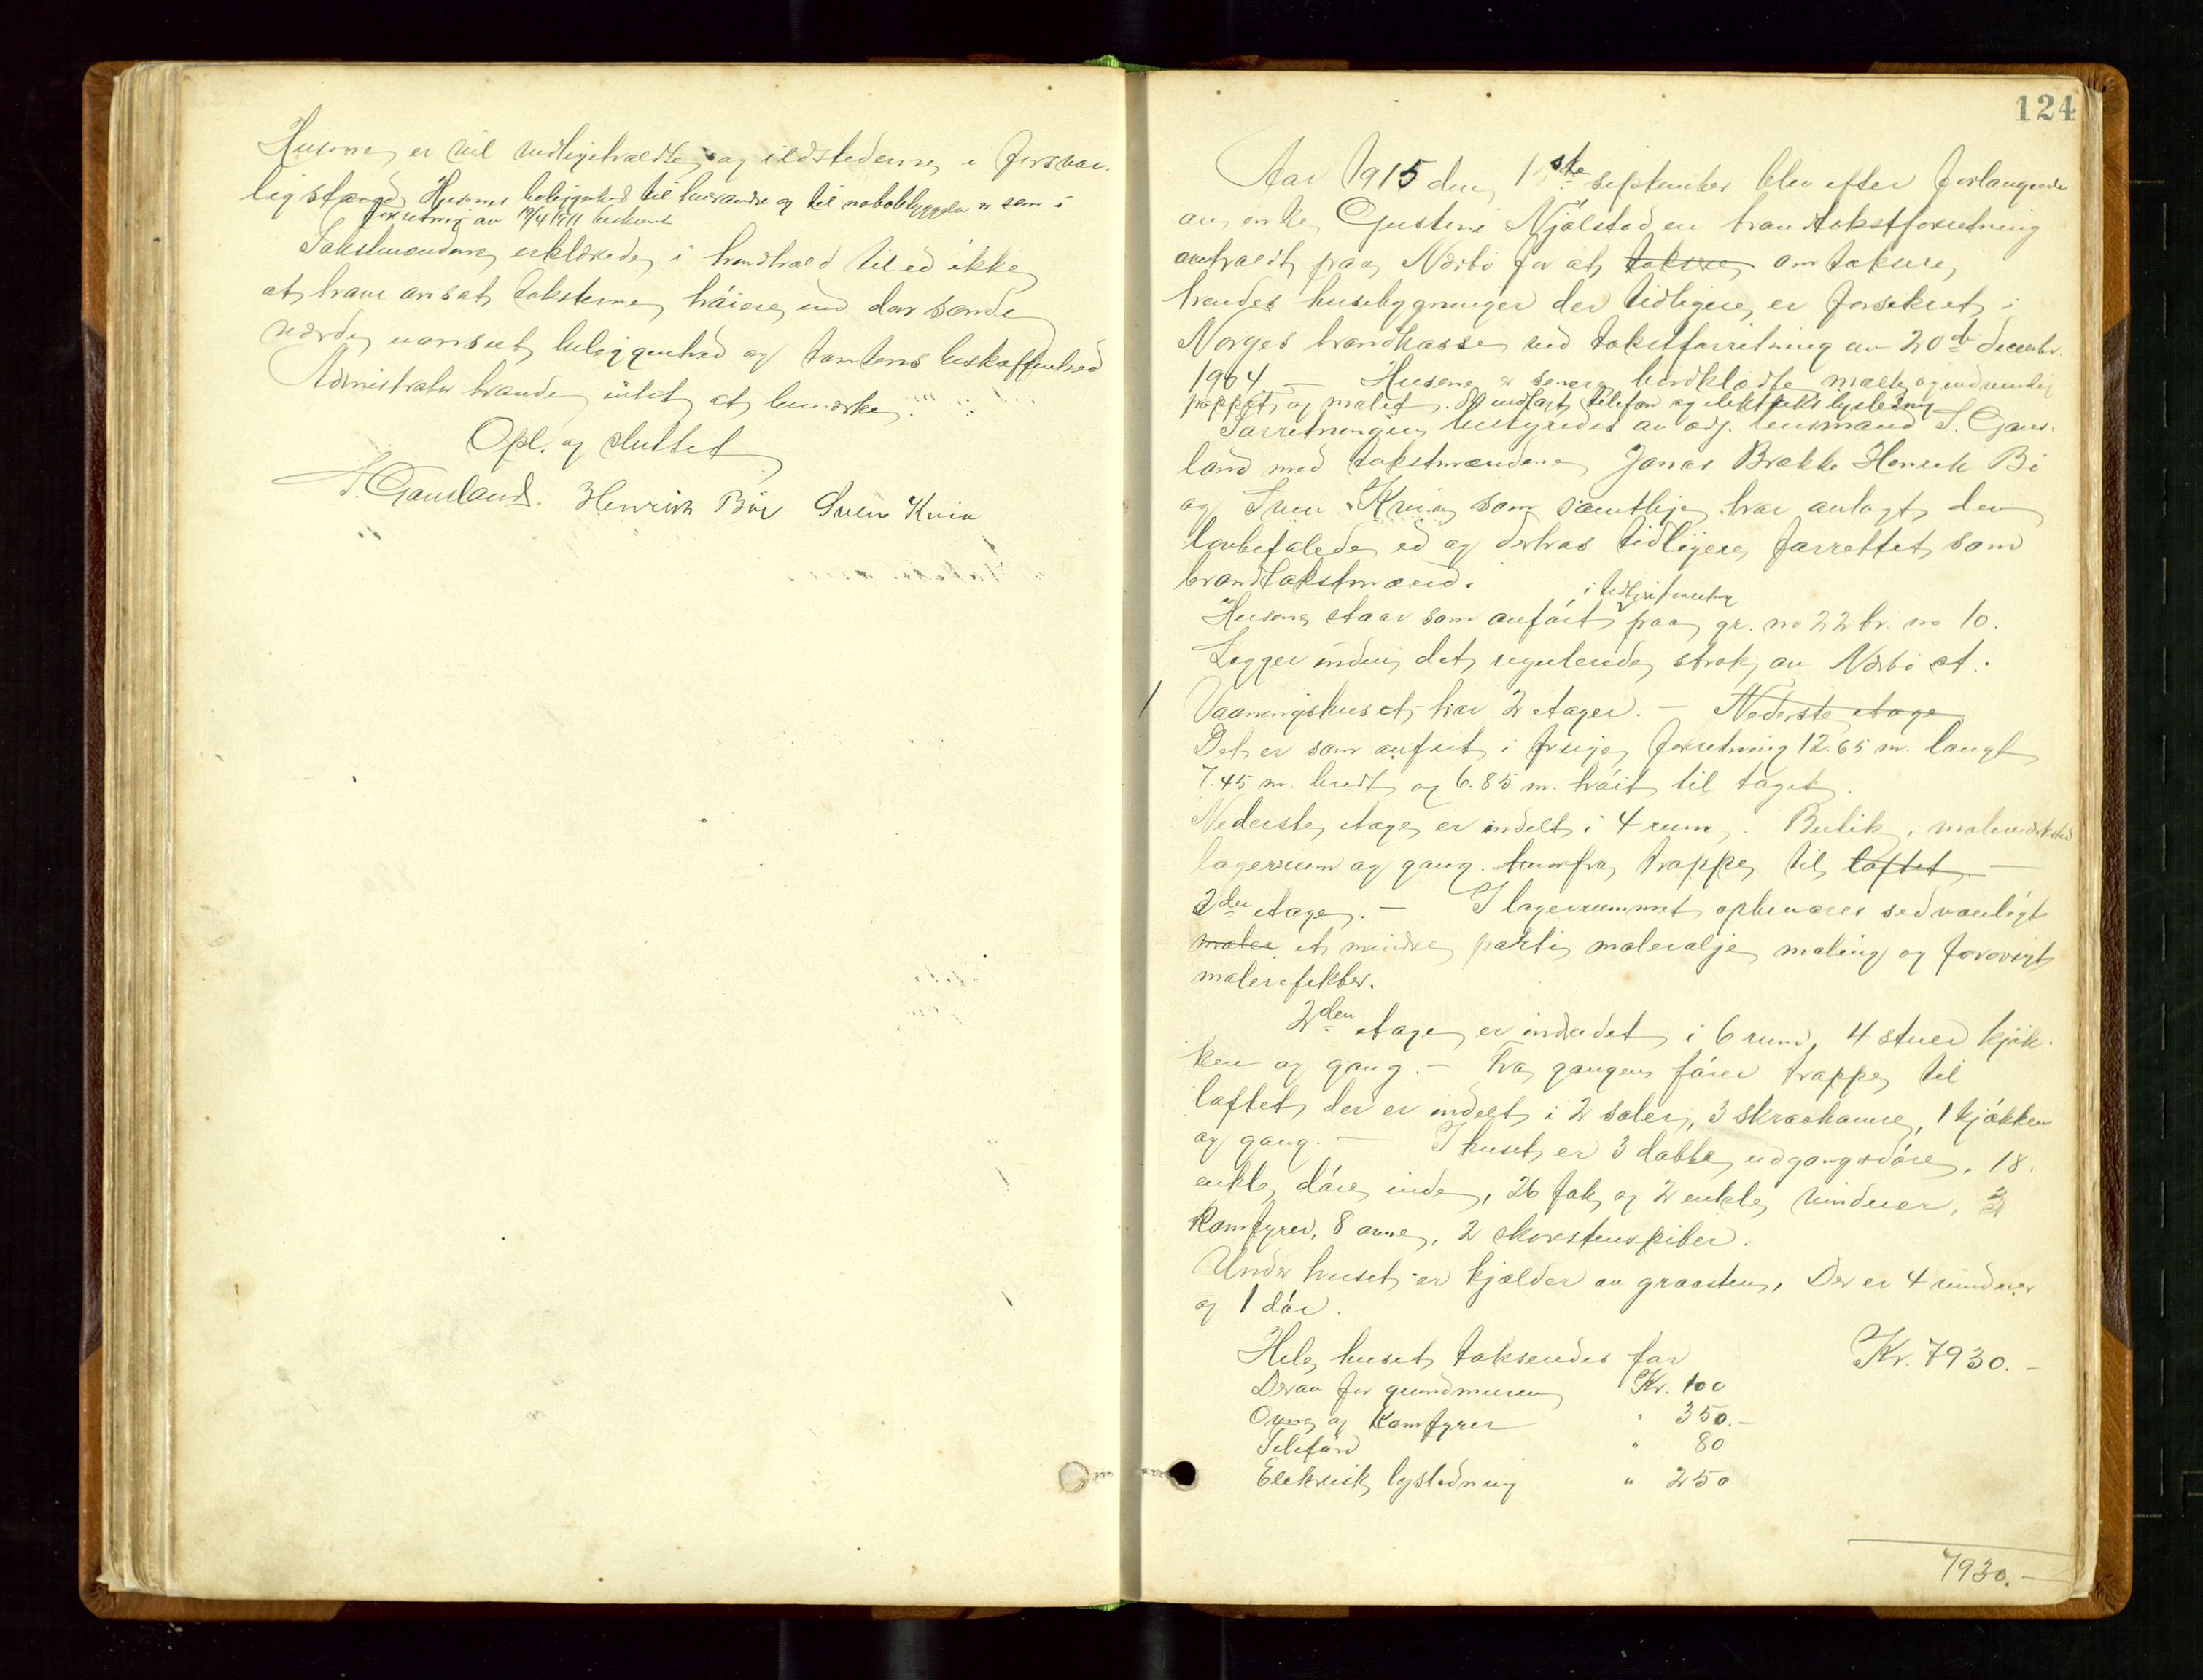 Husene er vel vedligeholdte og ildstederne i forsvar-
lig stand. Husenes beliggenhed til hverandre og til nabobebyggelse er som i
forretning av 19/4 1911 beskrevet
Takstmændene erklærede i henhold til ed ikke
at have ansat taksterne høiere end den sande
værdi, uanset beliggenhed og tomtens beskaffenhed
Administrator havde intet at bemærke.
Opl. og sluttet
S. Gausland. Henrik Bøe Sven Kvia
124
Aar 1915 den 1ste september blev efter forlangende
av enke Gustine Njålstad en brandtakstforretning
avholdt paa Nærbø for at taksere omtaksere
hendes husebygninger der tidligere er forsikret i
Norges brandkasse ved takstforretning av 20de decembr.
1904. — Husene er senere bordklædte malte og indvendig
pappet og malet. Er indlagt telefon og elektrisk lysledning
Forretningen bestyredes av adj. lensmand S. Gaus-
land med takstmændene Jonas Brække Henrik Bø
og Sven Kvia som samtlige har avlagt den
lovbefalede ed og derhos tidligere forrettet som
brandtakstmænd.
i tidligere forretning
Husene staar som anført paa gr. no 22 br. no 10.
Ligger inden det regulerede strøk av Nærbø st.
1 Vaaningshuset har 2 etager. — Nederste etage
Det er som anført i forrige forretning 12.65 m. langt
7.45 m. bredt og 6.85 m. høit til taget.
Nederste etage er indelt i 4 rum. Butik, malerverksted
lagerrum og gang. hvorfra trappe til loftet. —
2den etage. — I lagerrummet opbevares sedvanligt
maler et mindre parti malerolje maling og forøvrigt
malerefekter.
2den etage er indredet i 6 rum, 4 stuer kjøk-
ken og gang. — Fra gangen fører trappe til
loftet der er indelt i 2 saler, 3 skraakamre, 1 kjøkken
og gang. — I huset er 3 doble udgangsdøre, 18.
enkle døre inde, 26 fak og 2 enkle vinduer, 2
Komfyrer, 8 ovne, 2 skorstenspiber.
Under huset er kjælder av graasten, Der er 4 vinduer
og 1 dør.
Hele huset takseredes for Kr. 7930.—
Derav for grundmuren Kr. 100
Ovne og Komfyrer " 350.—
Telefon " 80
Elektrisk lysledning " 250
7930.—